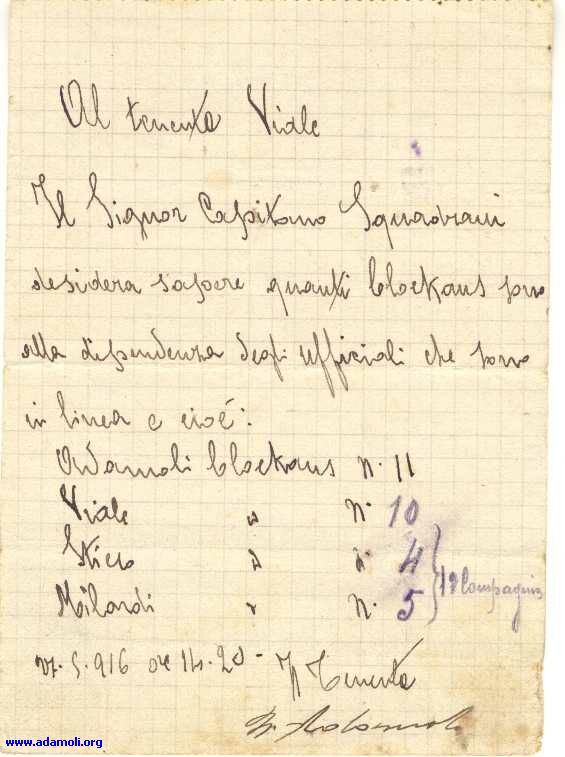 Al tenente Viale
Il Signor Capitano Squadrani
desidera sapere quanti blockaus sono
alla dipendenza degli ufficiali che sono
in linea e cioé:
Adamoli blockaus n. 11
Viale " N. 10
" n. 4
Milardi " N. 5
12 Compagnia
27.5.916 ore 14.20 - Il Tenente
Adamoli
www.adamoli.org